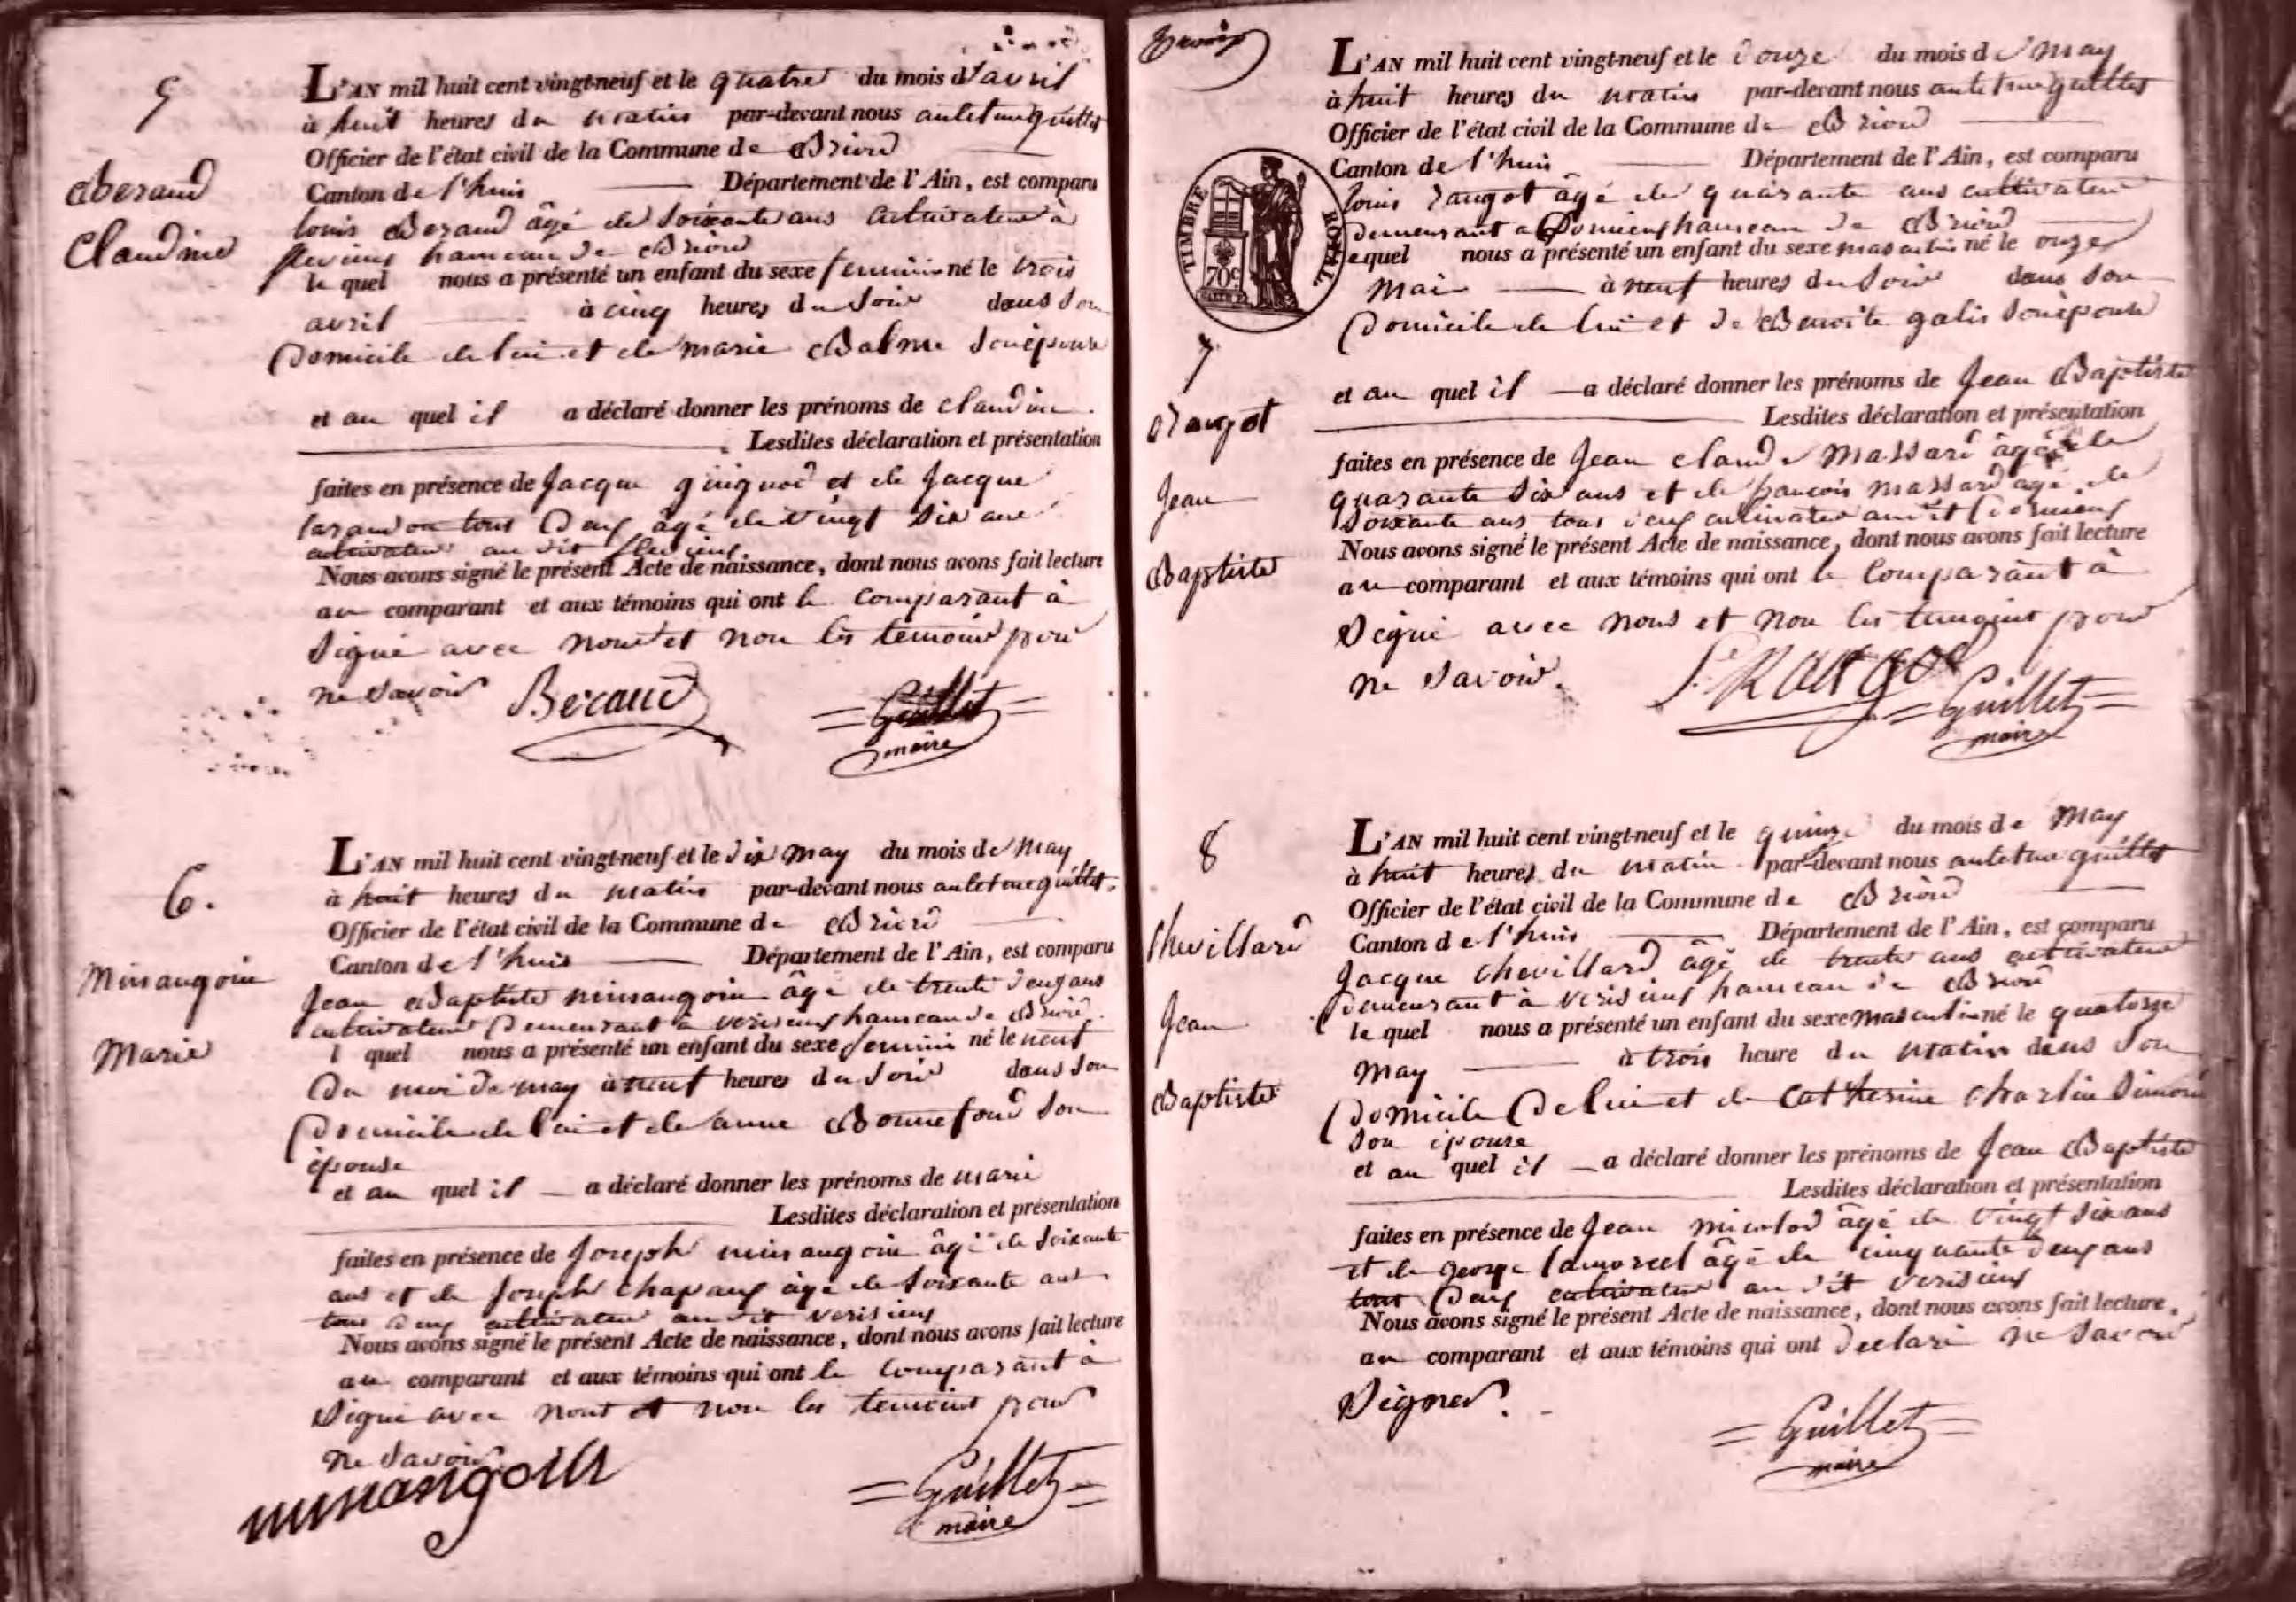 5
Beraud
Claudine
L'AN mil huit cent vingt-neuf et le quatre du mois d'avril
à huit heures du matin par-devant nous anthelme guillet
Officier de l'état civil de la Commune de Briord
Canton de l'huis Département de l'Ain, est comparu
louis Beraud âgé de soixante ans cultivateur à
hameau de Briord
le quel nous a présenté un enfant du sexe feminin né le trois
avril à cinq heures du soir dans son
Domicile de lui et de marie Balme son épouse
et au quel il a déclaré donner les prénoms de claudine.
Lesdites déclaration et présentation
faites en présence de Jacque guignod et de Jacque
tous Deux âgé de vingt six ans
cultivateur au dit
Nous avons signé le présent Acte de naissance, dont nous avons fait lecture
au comparant et aux témoins qui ont le comparant à
signé avec nous et non les temoins pour
ne savoir
Beraud
Guillet
maire
6.
Minangoin
Marie
L'AN mil huit cent vingt-neuf et le dix may du mois de May
à huit heures du matin par-devant nous anthelme guillet.
Officier de l'état civil de la Commune de Briord
Canton de l'huis Département de l'Ain, est comparu
Jean Baptiste minangoin âgé de trente deux ans
cultivateur Demeurant à verisieux hameau de Briord.
l quel nous a présenté un enfant du sexe feminin né le neuf
Du moi de may à neuf heures du soir dans son
Domicile de lui et de anne Bonnefond son
épouse
et au quel il a déclaré donner les prénoms de marie
Lesdites déclaration et présentation
faites en présence de Joseph minangoin âgé de soixante
ans et de Joseph chapaux âgé de soixante ans
tous deux cultivateur au dit verisieux
Nous avons signé le présent Acte de naissance, dont nous avons fait lecture
au comparant et aux témoins qui ont le comparant à
signé avec nous et non les temoins pour
ne savoir
minangoin
Guillet
maire
TIMBRE ROYAL
70c
7
rangot
Jean
Baptiste
L'AN mil huit cent vingt-neuf et le douze du mois de May
à huit heures du matin par-devant nous anthelme guillet
Officier de l'état civil de la Commune de Briord
Canton de l'huis Département de l'Ain, est comparu
louis rangot âgé de quarante ans cultivateur
demeurant a Dornieux hameau de Briord
lequel nous a présenté un enfant du sexe masculin né le onze
Mai à neuf heures du soir dans son
Domicile de lui et de Benoite galis son épouse
et au quel il a déclaré donner les prénoms de Jean Baptiste
Lesdites déclaration et présentation
faites en présence de Jean claude Massard âgé de
quarante six ans et de francois massard âgé de
soixante ans tous deux cultivateur au dit Dornieux
Nous avons signé le présent Acte de naissance, dont nous avons fait lecture
au comparant et aux témoins qui ont le comparant à
signé avec nous et non les temoins pour
ne savoir.
Rango
Guillet
maire
8
Chevillard
Jean
Baptiste
L'AN mil huit cent vingt-neuf et le quinze du mois de May
à huit heures du matin par-devant nous anthelme guillet
Officier de l'état civil de la Commune de Briord
Canton de l'huis Département de l'Ain, est comparu
Jacque chevillard âgé de trente ans cultivateur
demeurant à verisieux hameau de Briord
le quel nous a présenté un enfant du sexe masculin né le quatorze
May à trois heure du matin dans son
Domicile De lui et de Catherine charlin
son épouse
et au quel il a déclaré donner les prénoms de Jean Baptiste
Lesdites déclaration et présentation
faites en présence de Jean âgé de vingt six ans
et de george âgé de cinquante deux ans
tout Deux cultivateur au dit verisieux
Nous avons signé le présent Acte de naissance, dont nous avons fait lecture.
au comparant et aux témoins qui ont declaré ne savoir
signer.
Guillet
maire